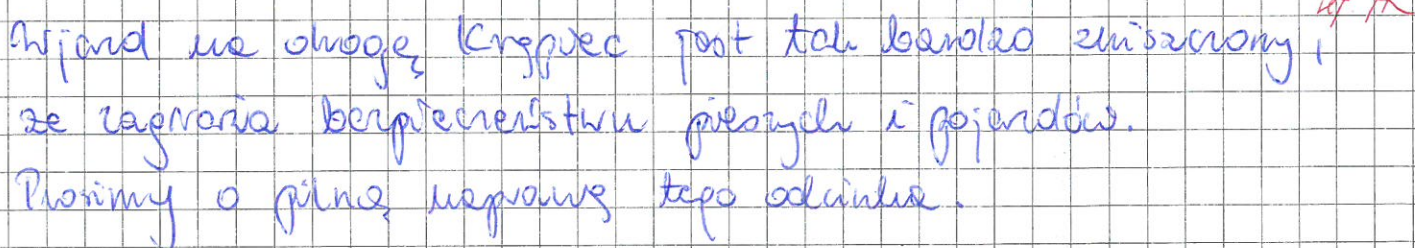 Wjazd na drogę Krępiec jest tak bardzo zniszczony,
że zagraża bezpieczeństwu pieszych i pojazdów.
Prosimy o pilną naprawę tego odcinka.